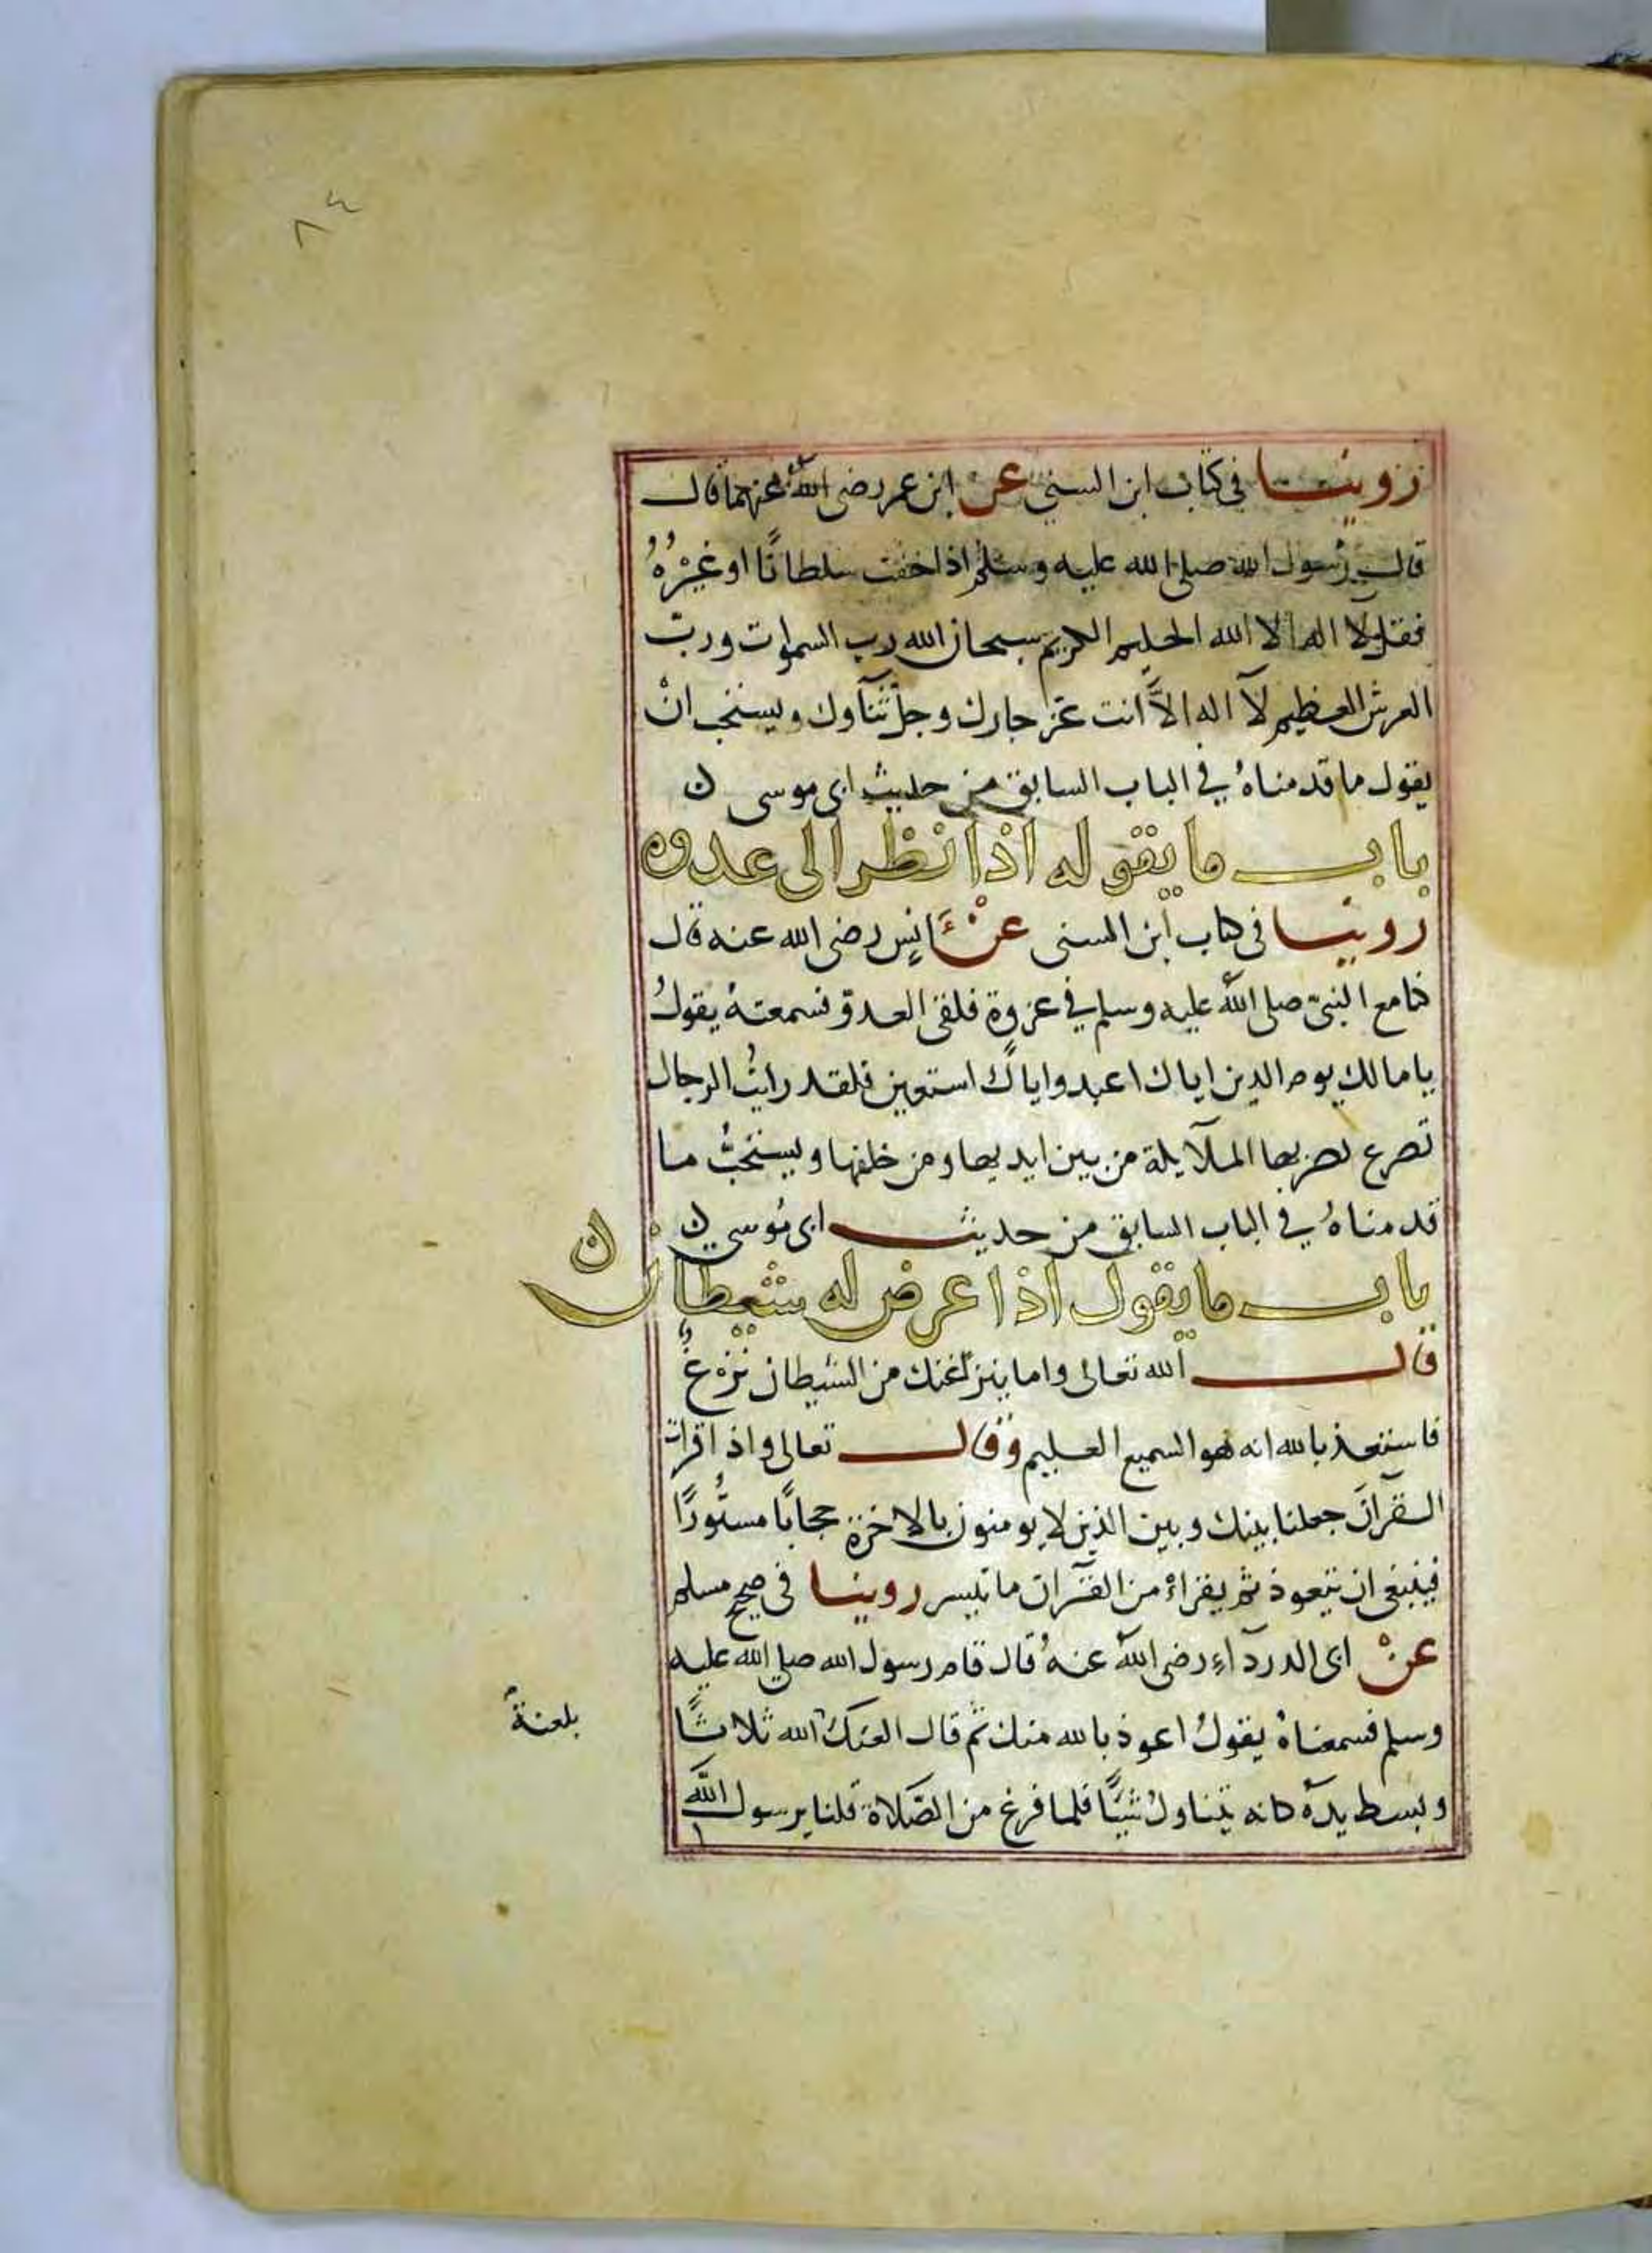 ٨٤
روينا في كتاب ابن السني عن ابن عمر رضى الله عنهما قال
قال رسول الله صلى الله عليه وسلم اذا خفت سلطانًا او غيرهُ
فقل لا اله الا الله الحليم الكريم سبحان الله رب السموات ورب
العرش العظيم لآ اله الاَّ انت عز جارك وجل ثنآوك ويستحب انْ
يقول ما قدمناهُ في الباب السابق من حديث ابى موسى ن
باب ما يقوله اذا نظر الى عدوه
روينا في كتاب ابن السنى عنْ انسٍ رضى الله عنه قال
كنا مع النبىّ صلى الله عليه وسلم في غزوة فلقى العدوّ فسمعتهُ يقولُ
يا مالك يوم الدين اياك اعبد واياك استعين فلقد رايتُ الرجال
تصرع تضربها الملآيكة من بين ايديها ومن خلفها ويستحبُّ ما
قدمناهُ في الباب السابق من حديث ابى مُوسى ن
باب ما يقول اذا عرض له شيطان ن
قال الله تعالى واما ينزغنك من الشيطان نزغٌ
فاستعذ بالله انه هو السميع العليم وقال تعالى واذا قرات
القرآنَ جعلنا بينك وبين الذين لا يومنون بالاخرة حجابًا مستُورًا
فينبغى ان يتعوذ ثم يقراءْ من القرآن ما تيسر روينا في صحيح مسلم
عنْ ابى الدردآءِ رضى الله عنهُ قال قام رسول الله صلى الله عليه
وسلم فسمعناهُ يقولُ اعوذ بالله منك ثم قال العنك الله ثلاثًا
بلعنة
وبسط يدهُ كانه يتناولُ شيًا فلما فرغ من الصَّلاة قلنا يرسول الله